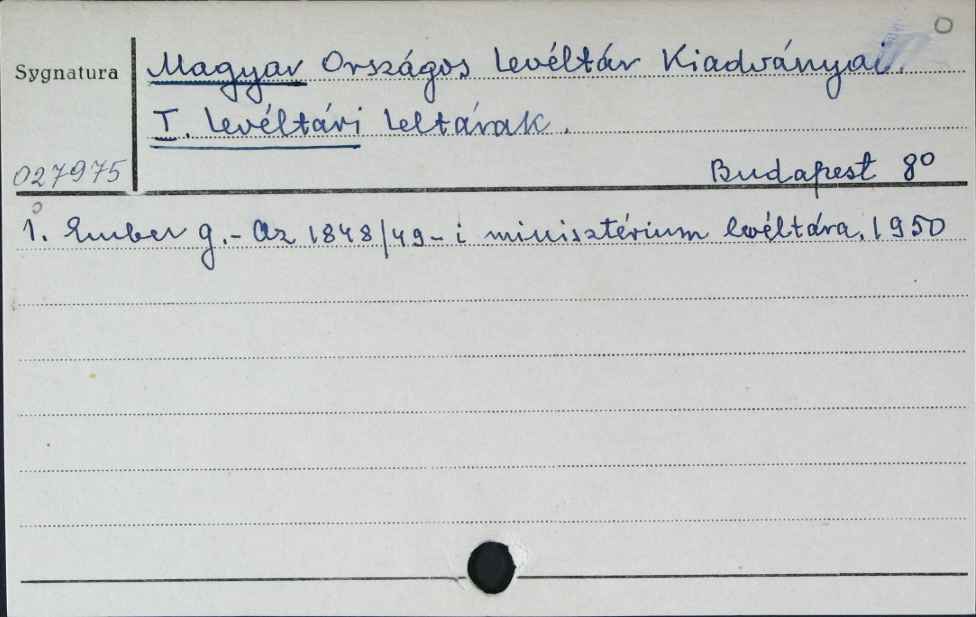 Sygnatura
Magyar Országos Levéltár Kiadványai.
I. Levéltári Leltárak.
027975
Budapest 8°
1. Ember g.- Az 1848/49-i minisztérium levéltára. 1950